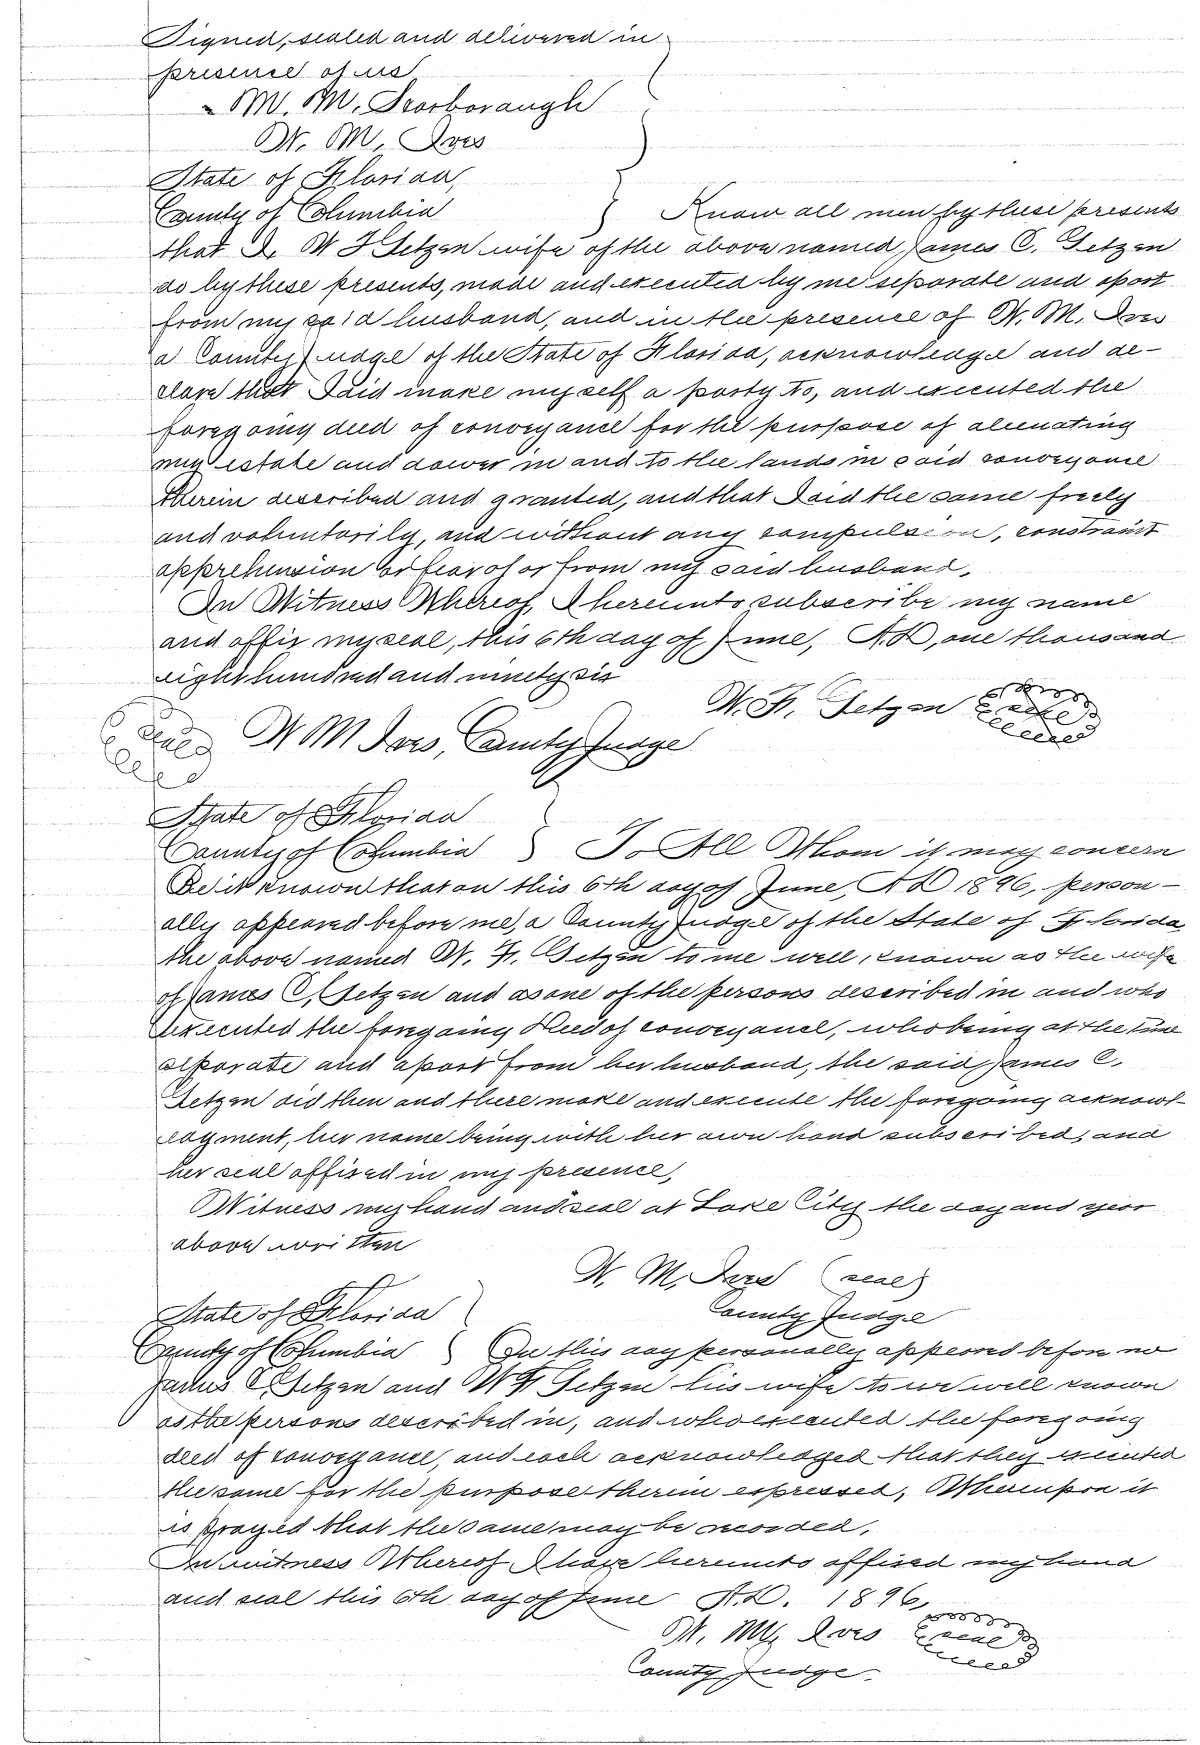 Signed, sealed and delivered in
presence of us
M. M. Scarborough
W. M. Ives
State of Florida,
County of Columbia } Know all men by these presents
that I, W F Getzen wife of the above named James C. Getzen
do by these presents, made and executed by me separate and apart
from my said husband, and in the presence of W. M. Ives
a County Judge of the State of Florida, acknowledge and de-
clare that I did make myself a party to, and executed the
foregoing deed of conveyance for the purpose of alienating
my estate and dower in and to the lands in said conveyance
therein described and granted, and that I did the same freely
and voluntarily, and without any compulsion, constraint
apprehension or fear of or from my said husband.
In Witness Whereof, I hereunto subscribe my name
and affix my seal, this 6th day of June, A.D, one thousand
eight hundred and ninety six
W. F. Getzen seal
seal W M Ives, County Judge
State of Florida
County of Columbia } To All Whom it may concern
Be it known that on this 6th day of June, A D 1896, person-
ally appeared before me, a County Judge of the State of Florida
the above named W. F. Getzen to me well, known as the wife
of James C, Getzen and as one of the persons described in and who
executed the foregoing Deed of conveyance, who being at the time
separate and apart from her husband, the said James C.
Getzen did then and there make and execute the foregoing acknowl-
edgment, her name being with her own hand subscribed, and
her seal affixed in my presence,
Witness my hand and seal at Lake City the day and year
above written
W. M. Ives (seal)
County Judge
State of Florida
County of Columbia } On this day personally appeared before me
James C, Getzen and W F Getzen his wife to me well known
as the persons described in, and who executed the foregoing
deed of conveyance, and each acknowledged that they executed
the same for the purpose therein expressed, Whereupon it
is prayed that the same may be recorded,
In witness Whereof I have hereunto affixed my hand
and seal this 6th day of June A.D. 1896,
W. M, Ives seal
County Judge.